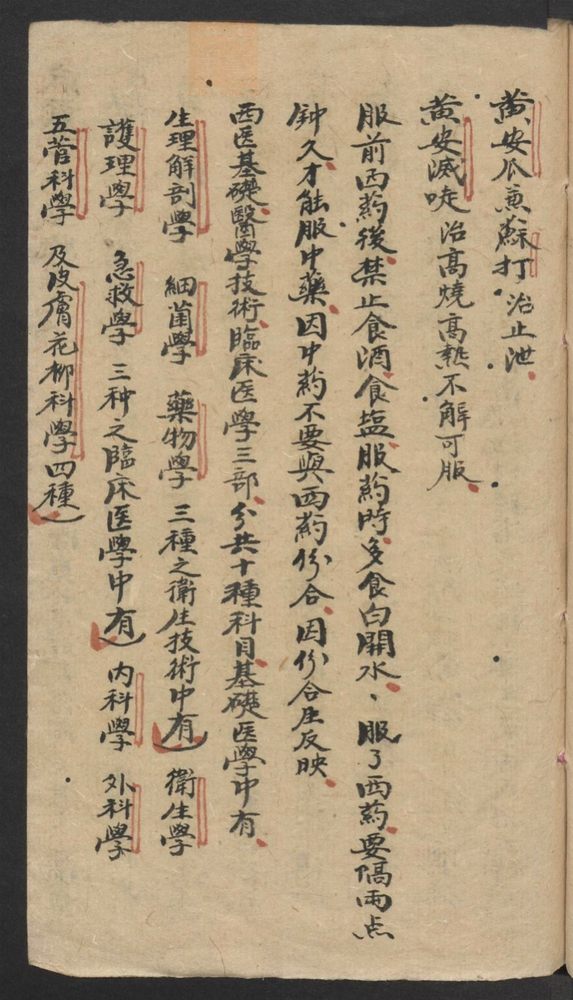 黄安瓜兼蘇打 治止泄
黄安滅唗 治高燒高熱不解可服
服前西葯後禁止食酒食塩服葯時多食白開水、服了西葯要隔兩点
鈡久才能服中藥因中葯不要與西葯份合因份合庄反映
西医基礎醫學技術臨床医學三部分共十種科目基礎医學中有
生理解剖學 細菌學 藥物學 三種之衛生技術中有 衛生學
護理學 急救學 三种之臨床医學中有 内科學 外科學
五菅科學 及皮膚花柳科學四種